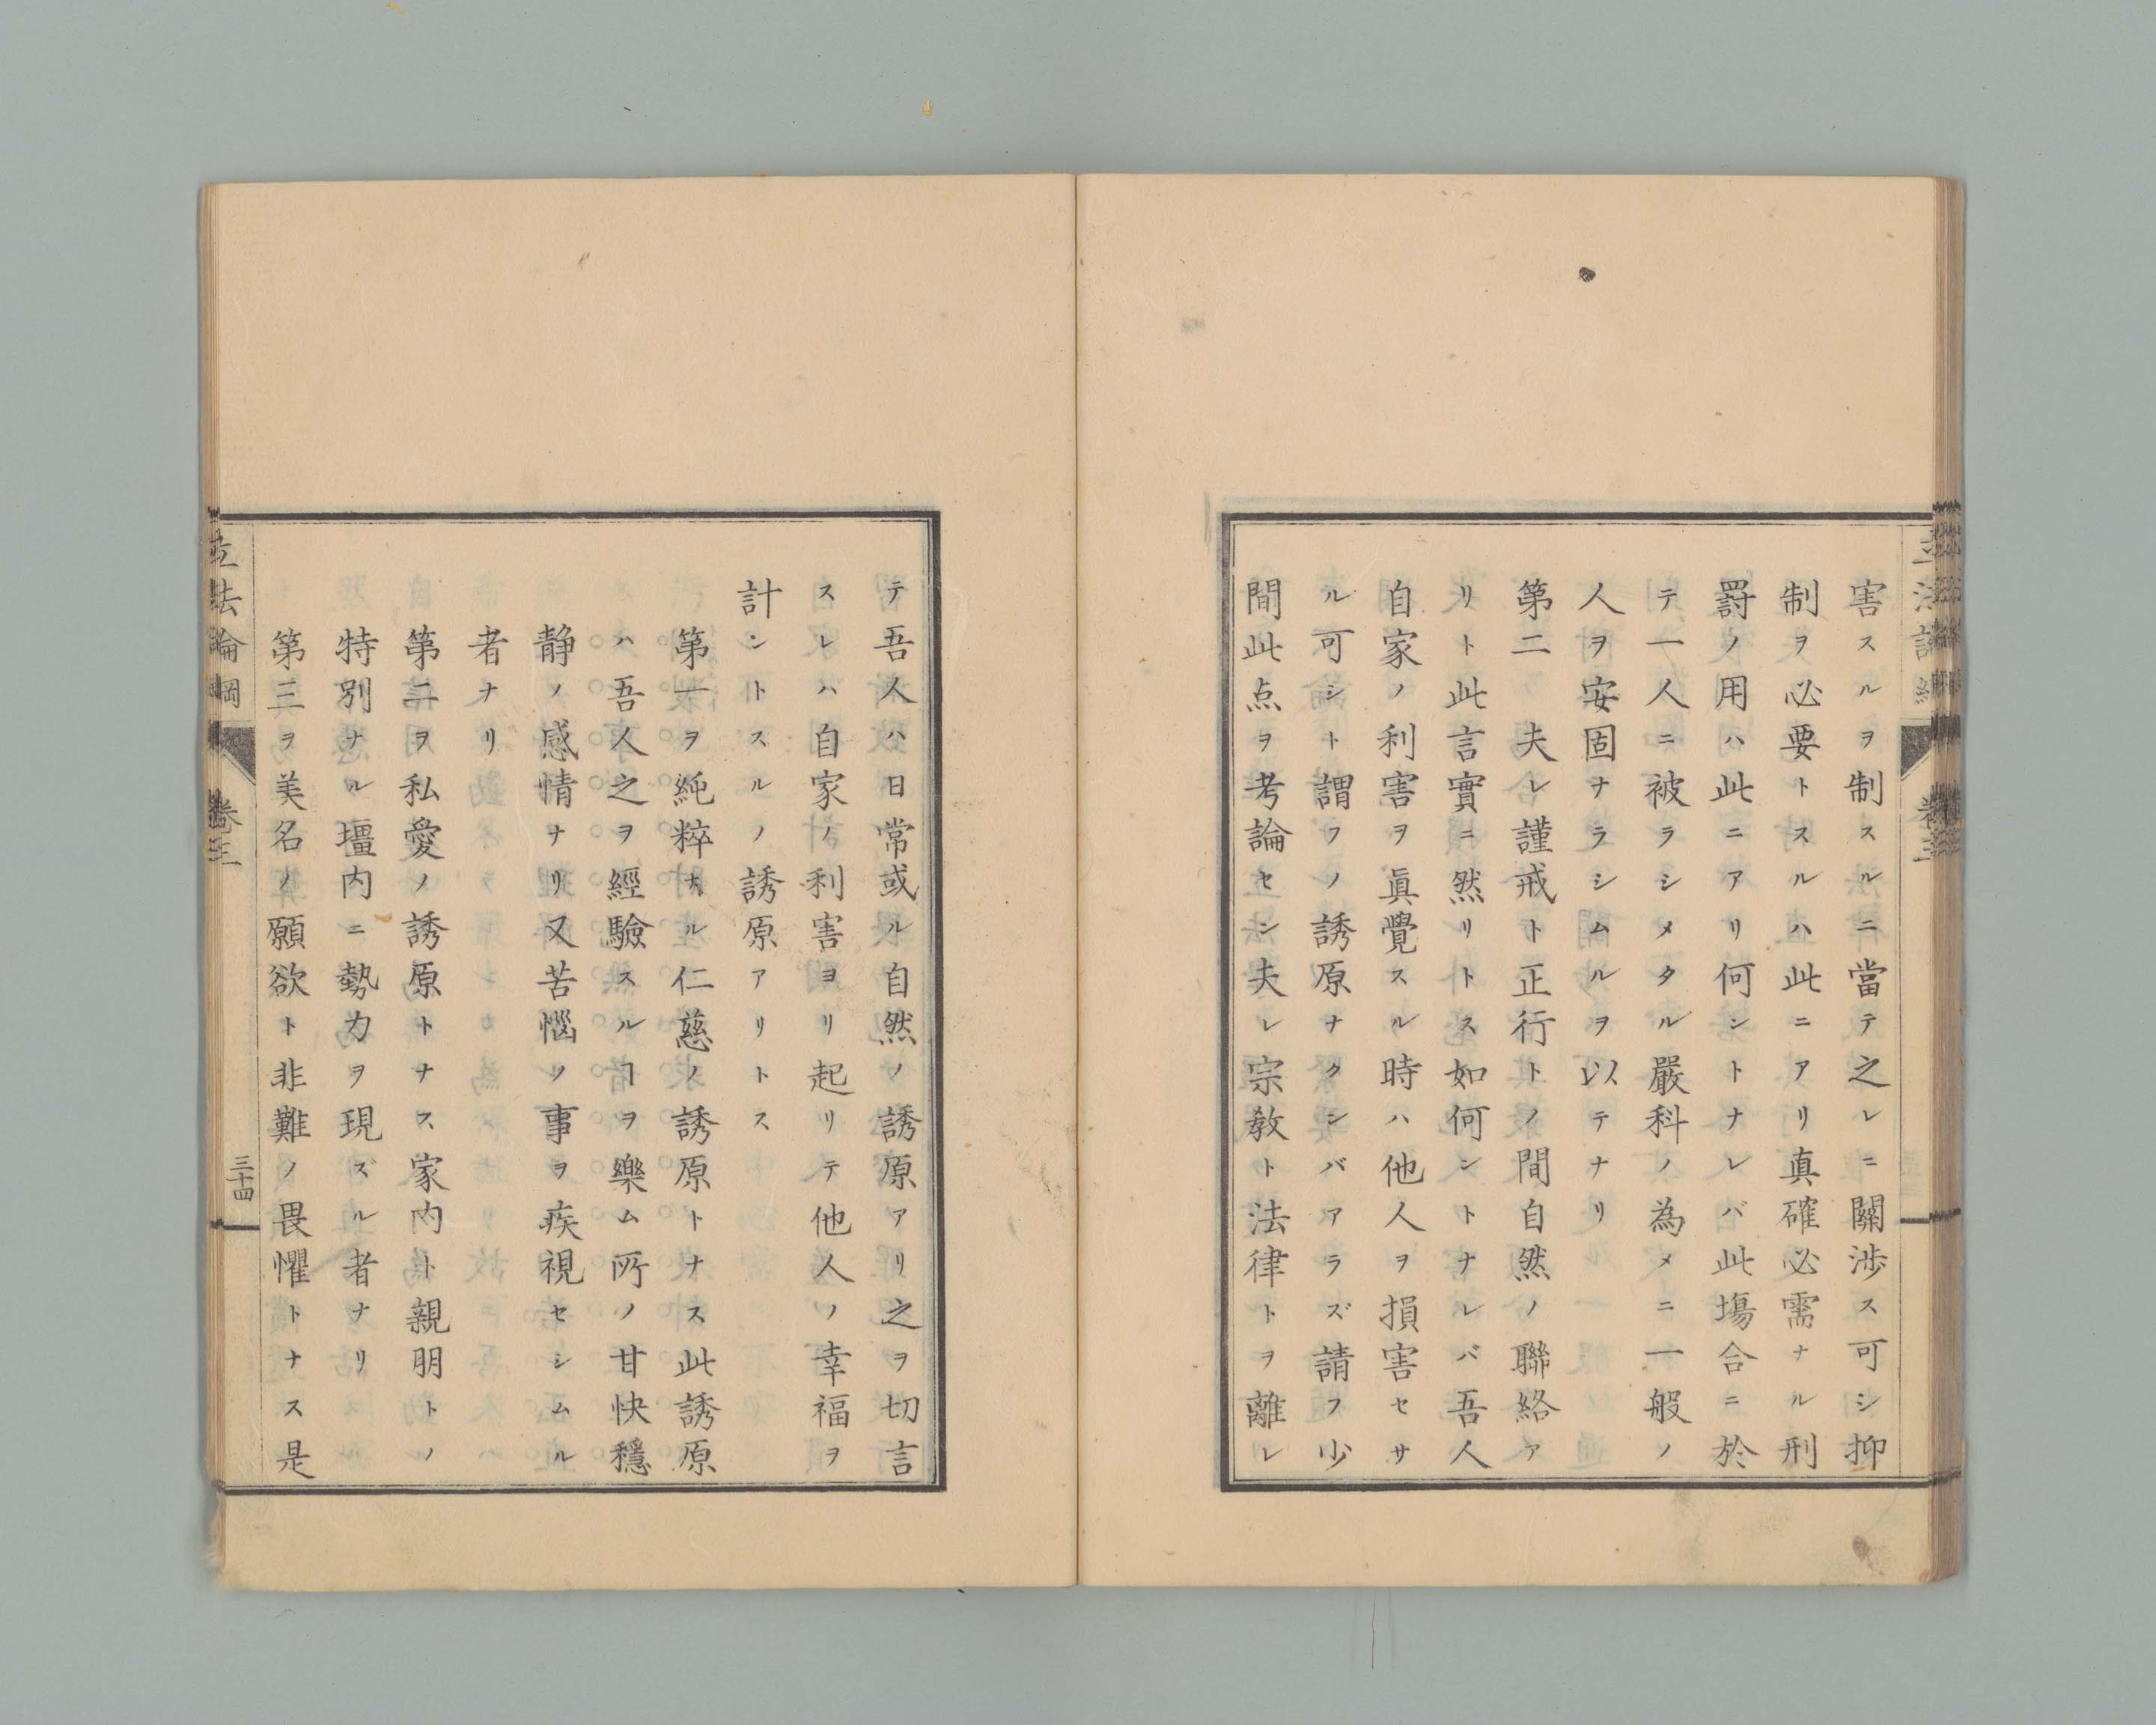 害スルヲ制スルニ當テ之レニ關渉ス可シ抑
制ヲ必要トスルハ此ニアリ真確必需ナル刑
罸ノ用ハ此ニアリ何ントナレバ此塲合ニ於
テ一人ニ被ラシメタル嚴科ノ為メニ一般ノ
人ヲ安固ナラシムルヲ以テナリ
第二　夫レ謹戒ト正行トノ間自然ノ聯絡ア
リト此言實ニ然リトス如何ントナレバ吾人
自家ノ利害ヲ眞覺スル時ハ他人ヲ損害セサ
ル可シト謂フノ誘原ナクンバアラズ請フ少
間此点ヲ考論セン夫レ宗教ト法律トヲ離レ
テ吾人ハ日常或ル自然ノ誘原アリ之ヲ切言
スレハ自家ノ利害ヨリ起リテ他人ノ幸福ヲ
計ントスルノ誘原アリトス
第一ヲ純粹ナル仁慈ノ誘原トナス此誘原
ハ吾人之ヲ經驗スルヿヲ樂ム所ノ甘快穩
静ノ感情ナリ又苦惱ノ事ヲ疾視セシムル
者ナリ
第二ヲ私愛ノ誘原トナス家内ト親朋トノ
特別ナル壃内ニ勢力ヲ現ズル者ナリ
第三ヲ美名ノ願欲ト非難ノ畏懼トナス是
立法論綱　卷三　三十四